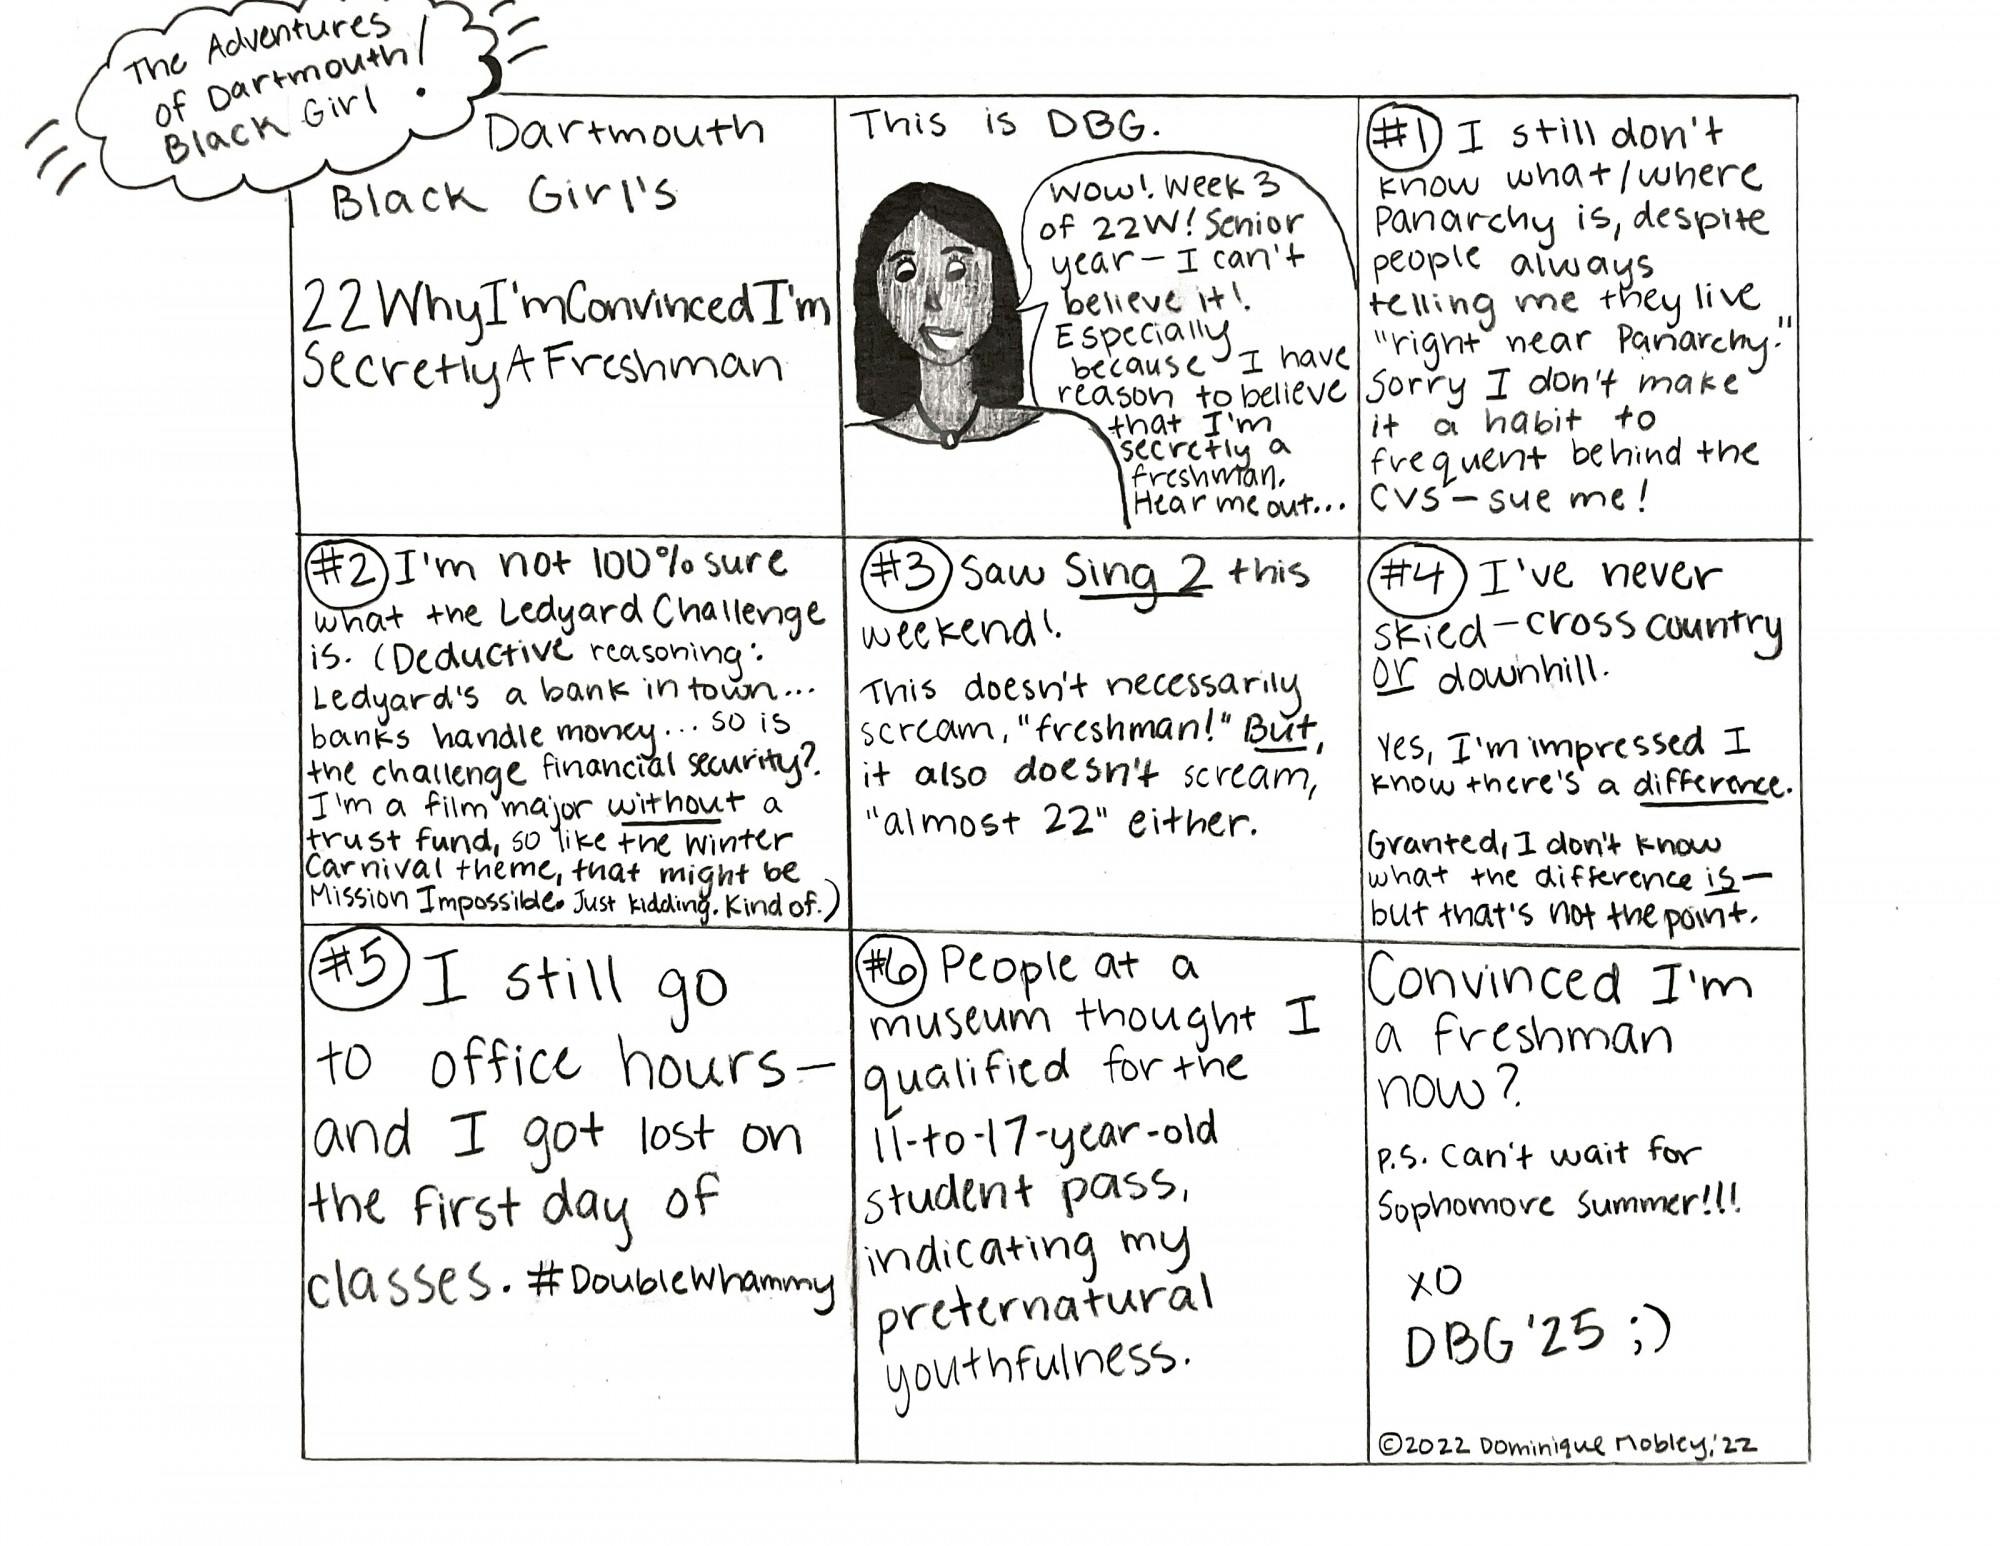 The Adventures
of Dartmouth
Black Girl!
Dartmouth
Black Girl's
22WhyI'mConvincedI'm
SecretlyAFreshman
This is DBG.
Wow! Week 3
of 22W! Senior
year – I can't
believe it!
Especially
because I have
reason to believe
that I'm
secretly a
freshman.
Hear me out...
#1 I still don't
know what/where
Panarchy is, despite
people always
telling me they live
"right near Panarchy."
Sorry I don't make
it a habit to
frequent behind the
CVS – sue me!
#2 I'm not 100% sure
what the Ledyard Challenge
is. (Deductive reasoning:
Ledyard's a bank in town...
banks handle money... so is
the challenge financial security?
I'm a film major without a
trust fund, so like the Winter
Carnival theme, that might be
Mission Impossible. Just kidding. Kind of.)
#3 Saw Sing 2 this
weekend!
This doesn't necessarily
scream, "freshman!" But,
it also doesn't scream,
"almost 22" either.
#4 I've never
skied – cross country
or downhill.
Yes, I'm impressed I
know there's a difference.
Granted, I don't know
what the difference is –
but that's not the point.
#5 I still go
to office hours –
and I got lost on
the first day of
classes. #DoubleWhammy
#6 People at a
museum thought I
qualified for the
11-to-17-year-old
student pass,
indicating my
preternatural
youthfulness.
Convinced I'm
a freshman
now?
P.S. Can't wait for
Sophomore Summer!!!
XO
DBG '25 ;)
©2022 Dominique Mobley, '22